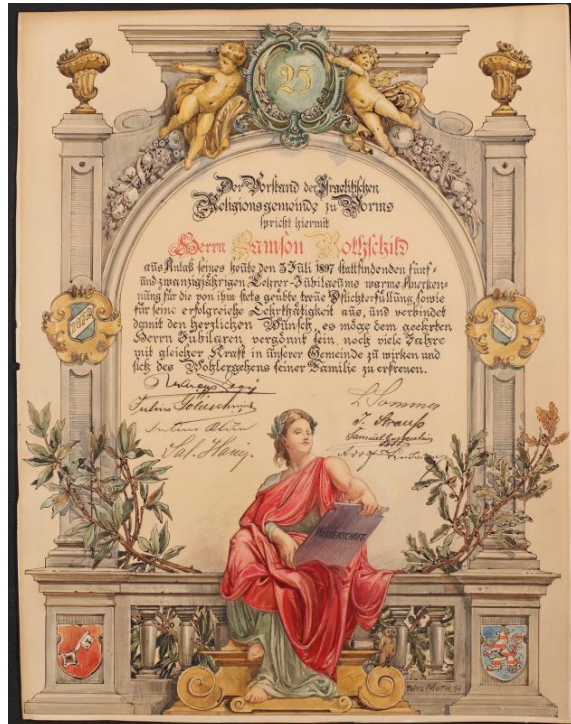 25
Der Vorstand der Israelitischen
Religionsgemeinde zu Worms
spricht hiermit
Herrn Samson Rothschild
aus Anlaß seines heute den 3 Juli 1897 stattfindenden fünf-
undzwanzigjährigen Lehrer-Jubilaeums warme Anerken-
nung für die von ihm stets geübte treue Pflichterfüllung, sowie
für seine erfolgreiche Lehrthätigkeit aus, und verbindet
damit den herzlichen Wunsch, es möge dem geehrten
Herrn Jubilaren vergönnt sein, noch viele Jahre
mit gleicher Kraft in unserer Gemeinde zu wirken und
sich des Wohlergehens seiner Familie zu erfreuen.
1872
1897
Julius Goldschmidt
L. Sommer
J. Strauß
Julius
Samuel
Sal.
Adolf
WISSENSCHAFT
Fritz Muth